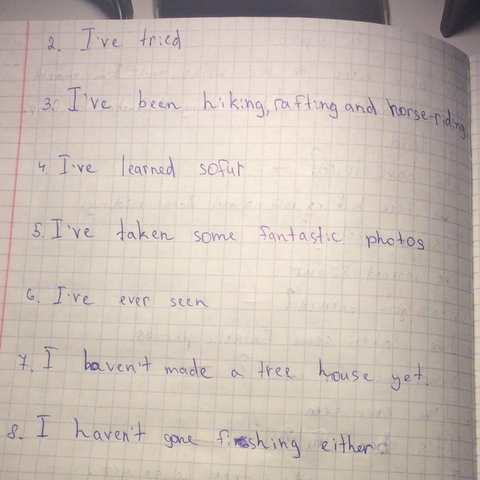 2. I've tried
3. I've been hiking, rafting and horse-riding
4. I've learned sofur
5. I've taken some fantastic photos
6. I've ever seen
7. I haven't made a tree house yet.
8. I haven't gone fishing either